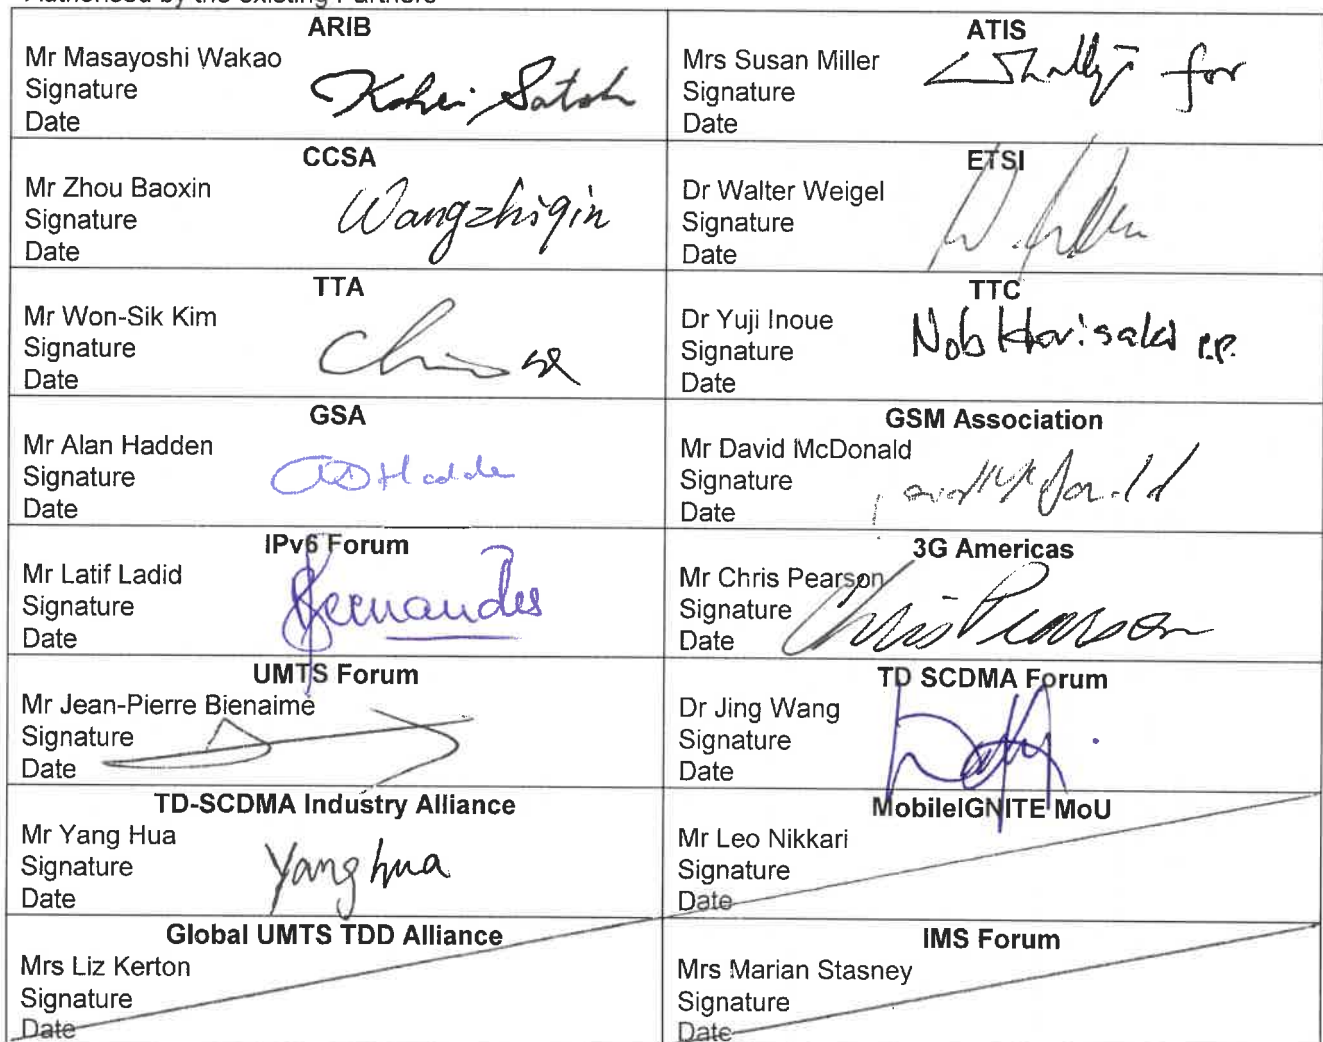 Authorised by the existing Partners
ARIB
Mr Masayoshi Wakao
Signature Kohei Satoh
Date
ATIS
Mrs Susan Miller
Signature for
Date
CCSA
Mr Zhou Baoxin
Signature Wangzhiqin
Date
ETSI
Dr Walter Weigel
Signature
Date
TTA
Mr Won-Sik Kim
Signature
Date
TTC
Dr Yuji Inoue
Signature Nob Horisaki p.p.
Date
GSA
Mr Alan Hadden
Signature
Date
GSM Association
Mr David McDonald
Signature
Date
IPv6 Forum
Mr Latif Ladid
Signature Fernandes
Date
3G Americas
Mr Chris Pearson
Signature Chris Pearson
Date
UMTS Forum
Mr Jean-Pierre Bienaimé
Signature
Date
TD SCDMA Forum
Dr Jing Wang
Signature
Date
TD-SCDMA Industry Alliance
Mr Yang Hua
Signature Yang hua
Date
MobileIGNITE MoU
Mr Leo Nikkari
Signature
Date
Global UMTS TDD Alliance
Mrs Liz Kerton
Signature
Date
IMS Forum
Mrs Marian Stasney
Signature
Date